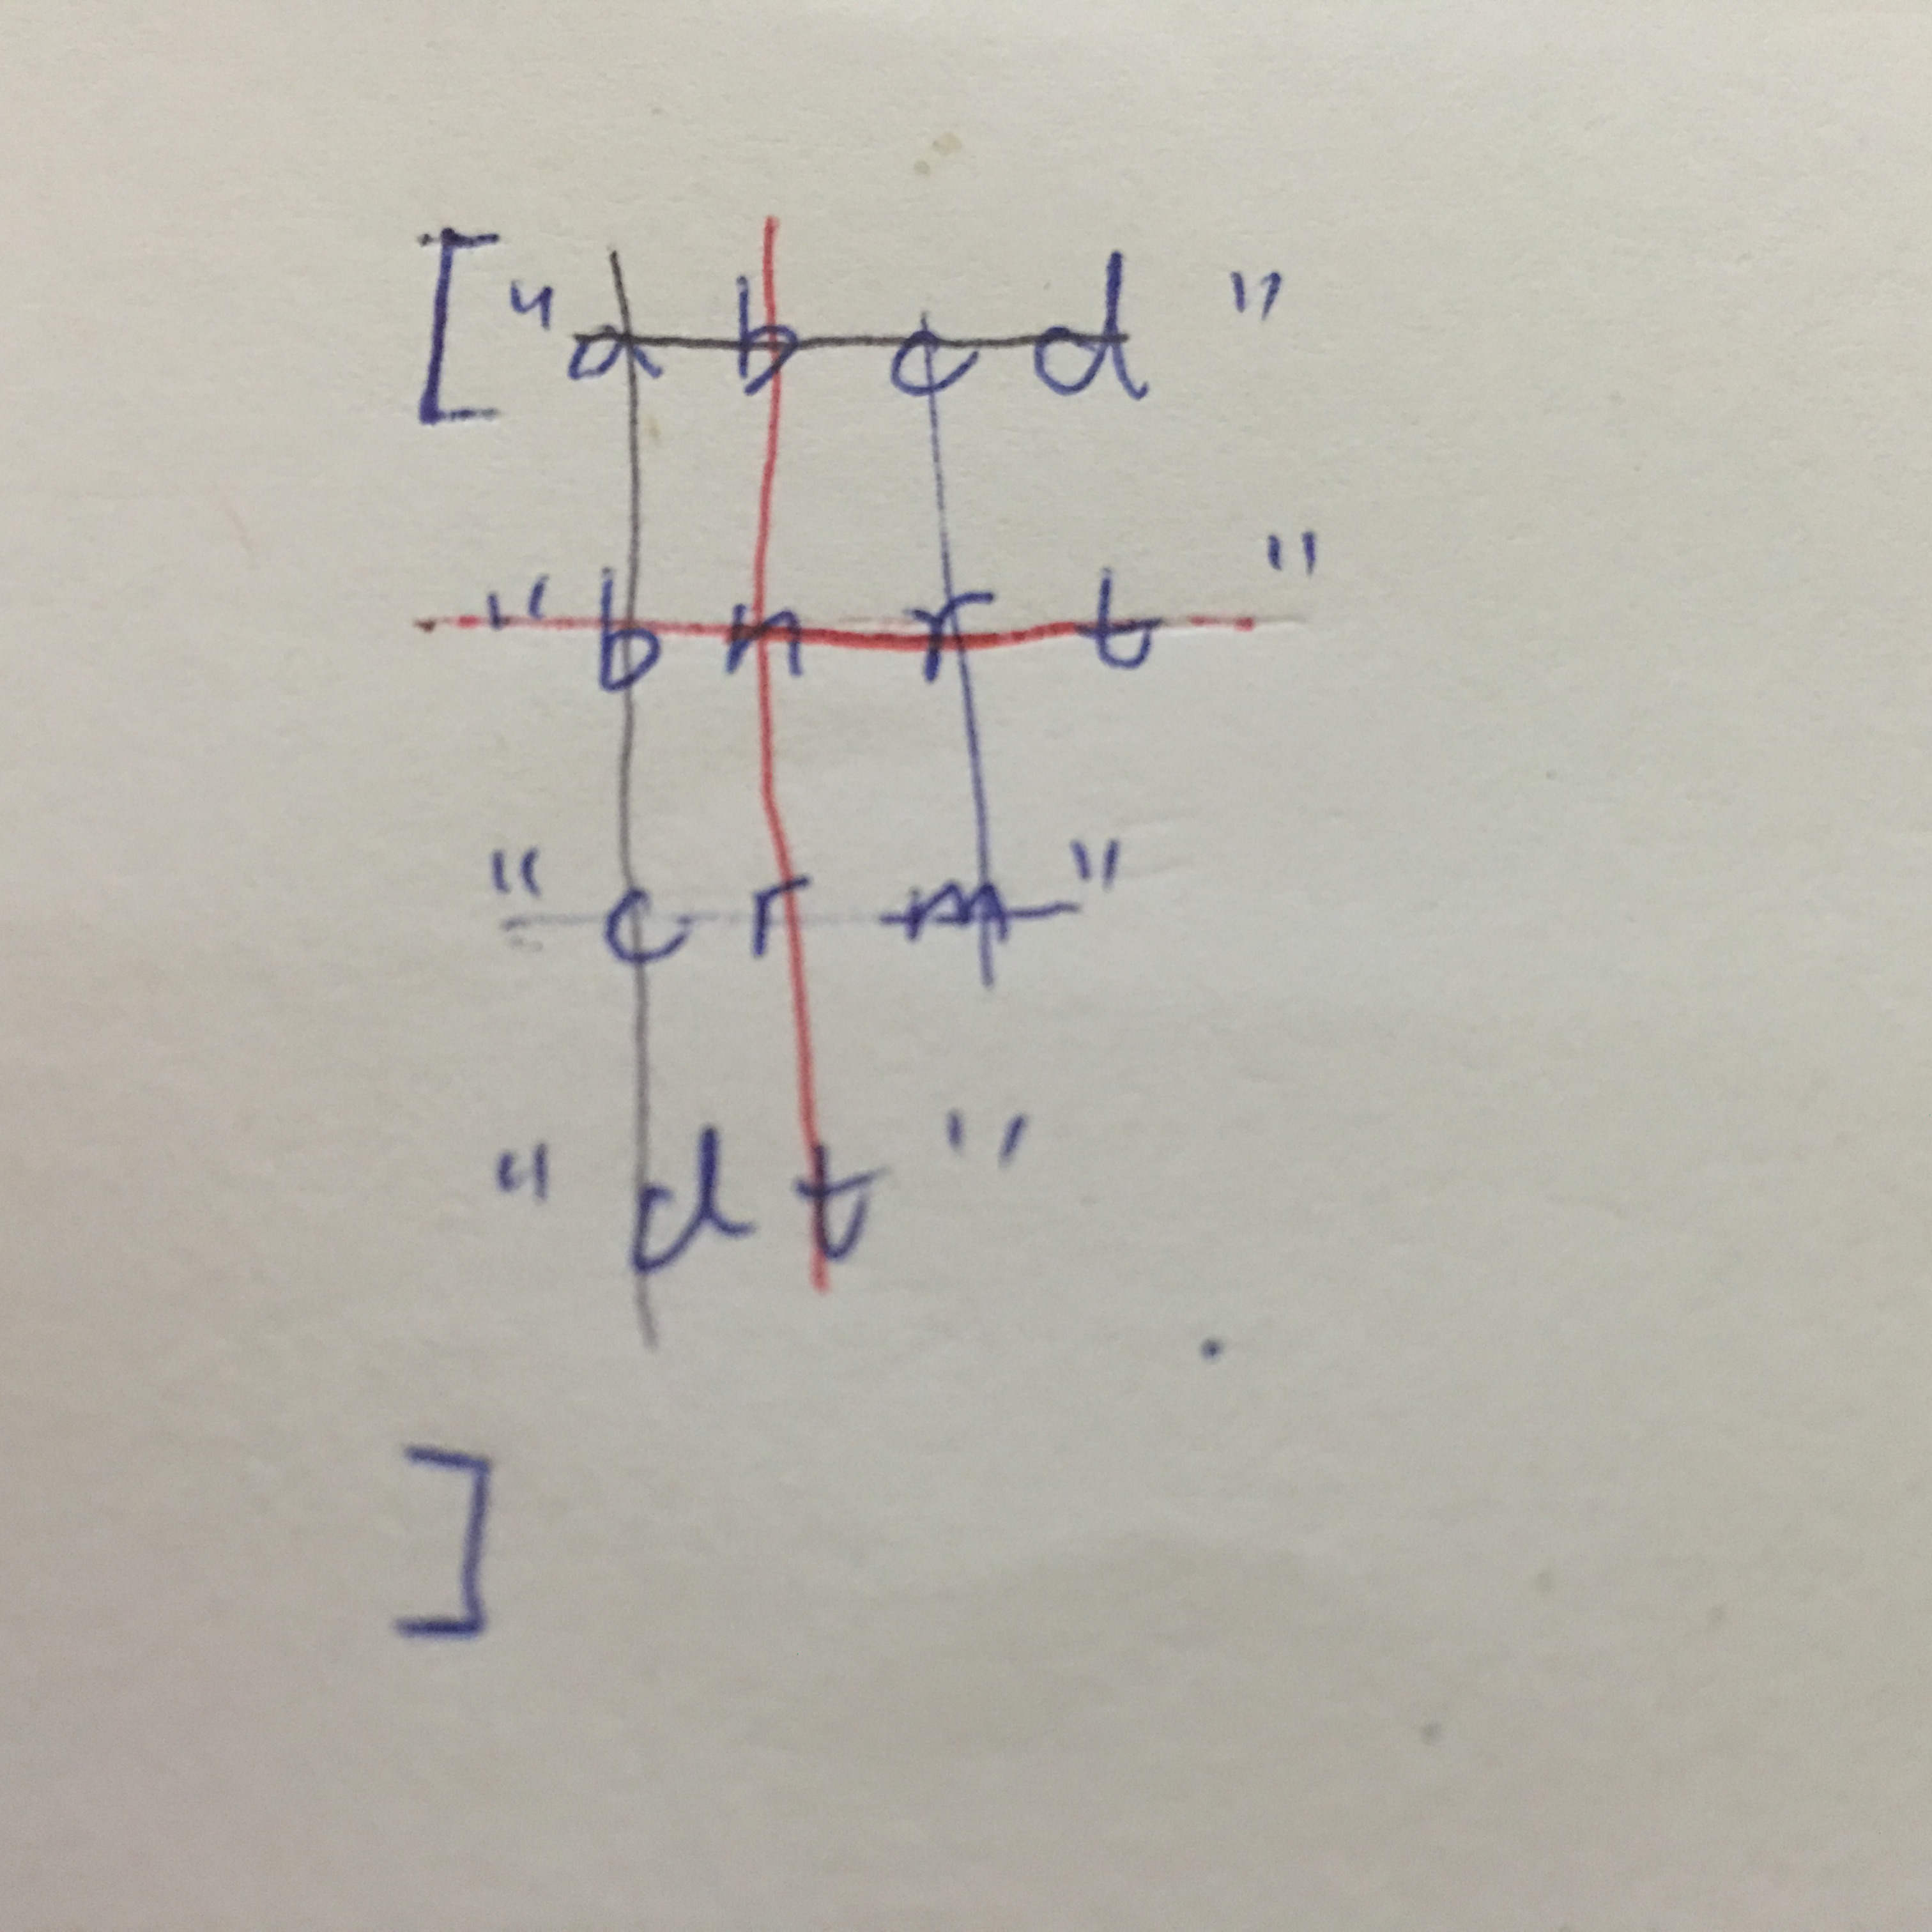 ["abcd"
"bnrt"
"crm"
"dt"
]